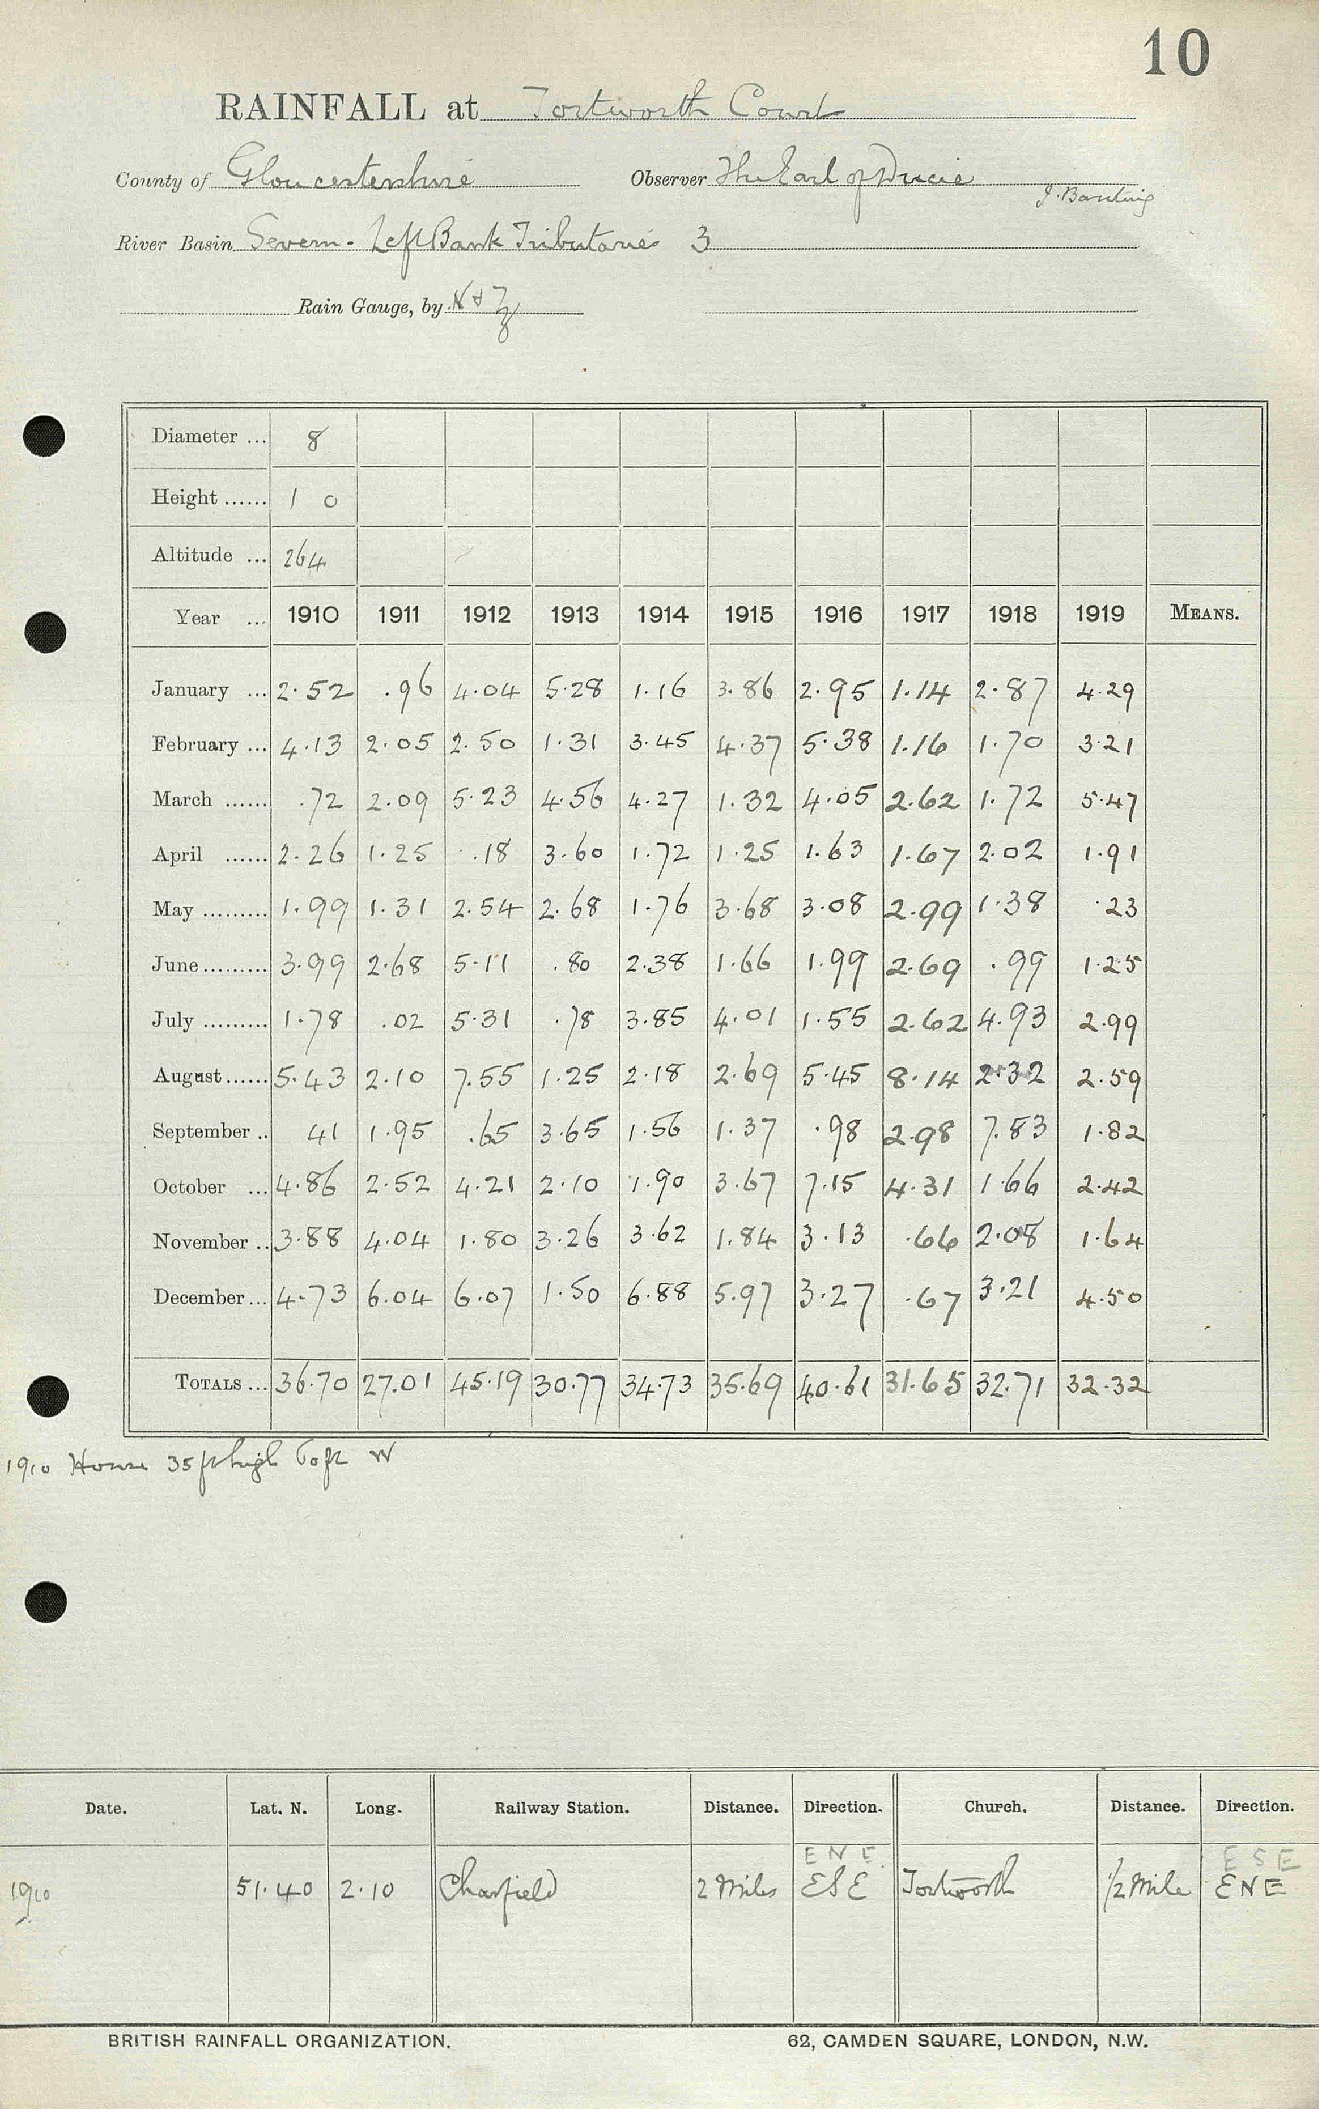 10
RAINFALL at Tortworth Court
County of Gloucestershire Observer The Earl of Ducie
J. Banting
River Basin Severn - Left Bank Tributaries 3
Rain Gauge, by N & Z
Diameter ... 8
Height ...... 1 0
Altitude ... 264
Year ... 1910 1911 1912 1913 1914 1915 1916 1917 1918 1919 MEANS.
January ... 2.52 .96 4.04 5.28 1.16 3.86 2.95 1.14 2.87 4.29
February ... 4.13 2.05 2.50 1.31 3.45 4.37 5.38 1.16 1.70 3.21
March ...... .72 2.09 5.23 4.56 4.27 1.32 4.05 2.62 1.72 5.47
April ...... 2.26 1.25 .18 3.60 1.72 1.25 1.63 1.67 2.02 1.91
May ......... 1.99 1.31 2.54 2.68 1.76 3.68 3.08 2.99 1.38 .23
June ......... 3.99 2.68 5.11 .80 2.38 1.66 1.99 2.69 .99 1.25
July ......... 1.78 .02 5.31 .78 3.85 4.01 1.55 2.62 4.93 2.99
August ...... 5.43 2.10 7.55 1.25 2.18 2.69 5.45 8.14 2.32 2.59
September .. 41 1.95 .65 3.65 1.56 1.37 .98 2.98 7.83 1.82
October ... 4.86 2.52 4.21 2.10 1.90 3.67 7.15 4.31 1.66 2.42
November .. 3.88 4.04 1.80 3.26 3.62 1.84 3.13 .66 2.08 1.64
December ... 4.73 6.04 6.07 1.50 6.88 5.97 3.27 .67 3.21 4.50
TOTALS ... 36.70 27.01 45.19 30.77 34.73 35.69 40.61 31.65 32.71 32.32
1910 House 35 ft high 60 ft W
Date. Lat. N. Long. Railway Station. Distance. Direction. Church. Distance. Direction.
ENE. ESE
1910 51.40 2.10 Charfield 2 Miles ESE Tortworth 1/2 Mile ENE
BRITISH RAINFALL ORGANIZATION. 62, CAMDEN SQUARE, LONDON, N.W.